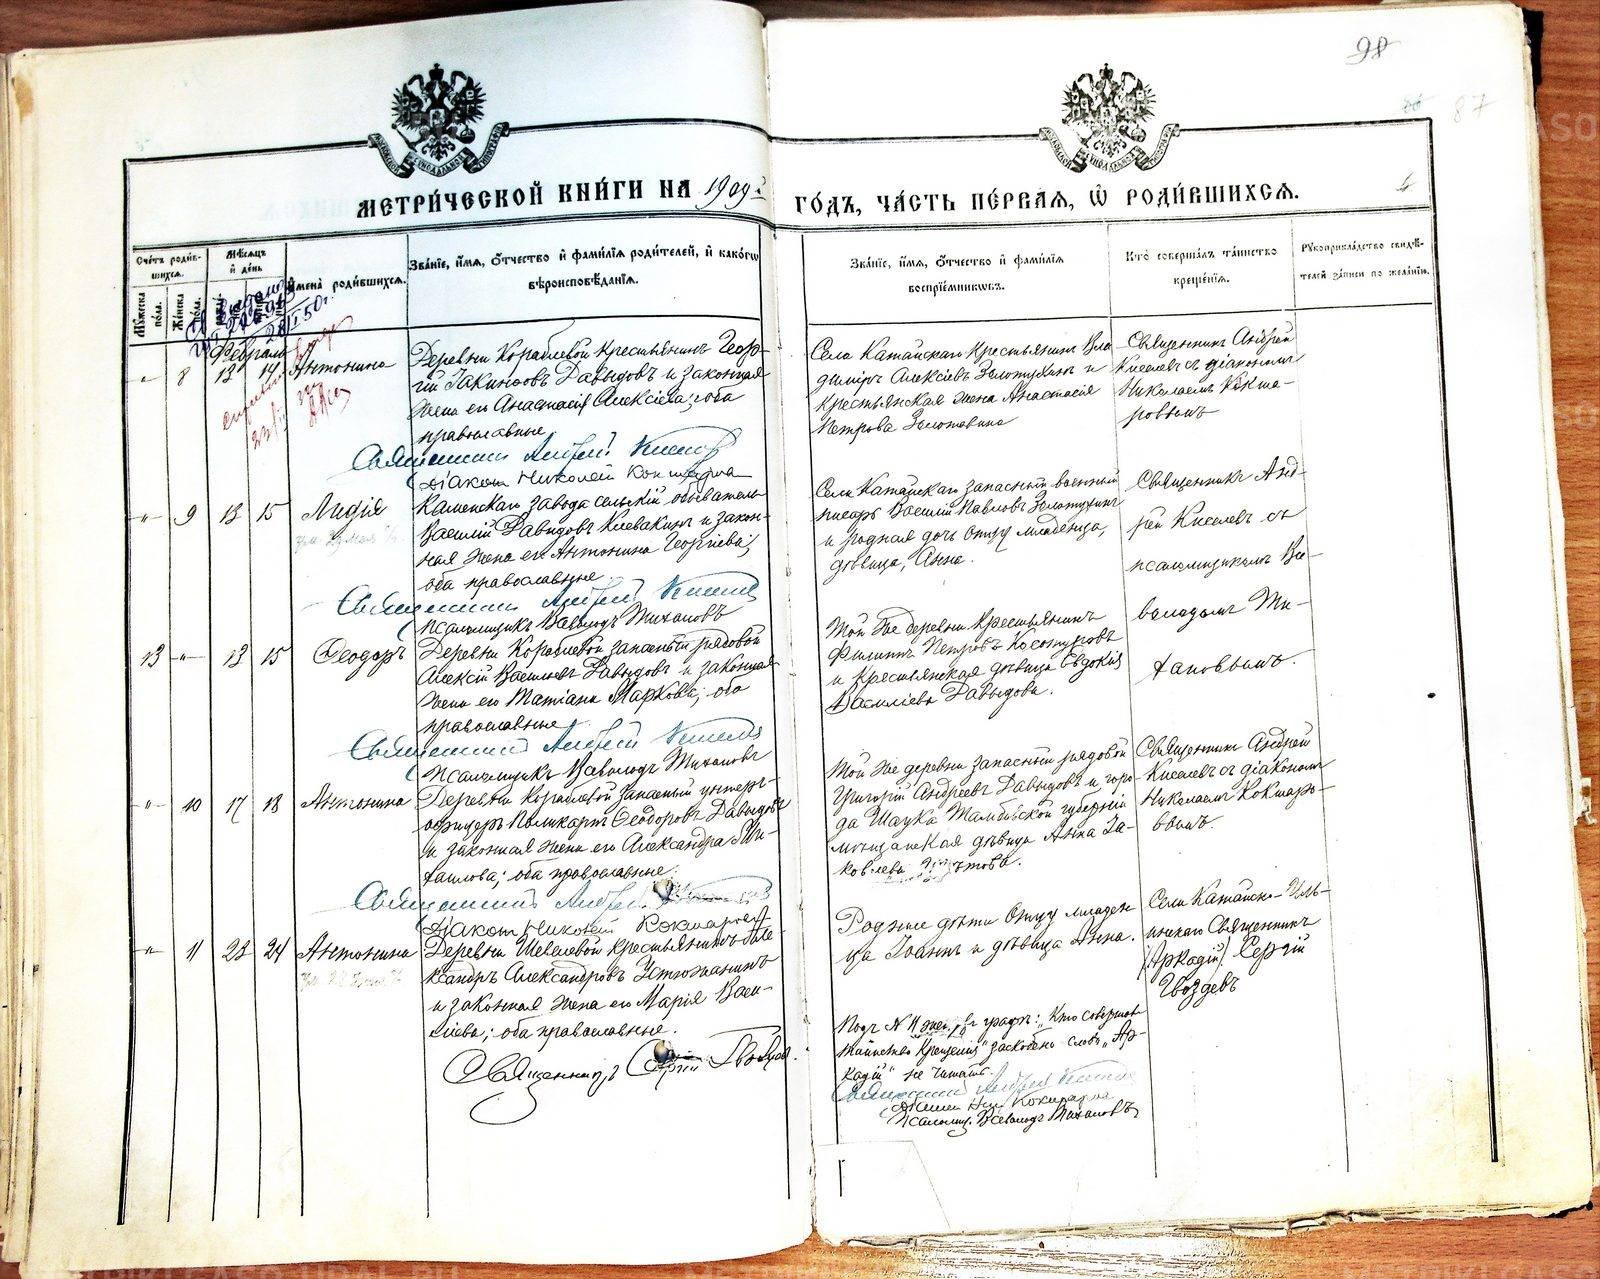 98
87
МЕТРИ́ЧЕСКОЙ КНИ́ГИ НА 1909й ГО́ДЪ, ЧА́СТЬ ПЕ́РВАЯ, Ѡ РОДИ́ВШИХСЯ.
4
Сче́тъ роди́в-
шихся.
Мꙋжеска
пола.
Же́нска
пола.
Мѣ́сяцъ
и҆ де́нь
И҆мена̀ роди́вшихся.
Зва́нїе, и҆́мя, ѻ҆́тчество и҆ фами́лїя роди́телей, и҆ како́гѡ
вѣроисповѣ́данїя.
Зва́нїе, и҆́мя, ѻ҆́тчество и҆ фами́лїя
воспрїе́мникѡвъ.
Кто̀ соверша́лъ та́инство
креще́нїя.
Рꙋкоприкла́дство свидѣ́-
телей за́писи по жела́нїю.
Февраль
" 8 12 14 Антонина
Деревни Кораблевой крестьянинъ Геор-
гій Іакинѳовъ Давыдовъ и законная
жена его Анастасія Алексіева; оба
православные.
Священникъ Андрей Киселевъ
Діаконъ Николай Кокшаровъ
Села Катайскаго крестьянинъ Вла-
димiръ Алексіевъ Золотухинъ и
крестьянская жена Анастасія
Петрова Золотавина
Священникъ Андрей
Киселевъ съ діакономъ
Николаемъ Кокша-
ровымъ
" 9 13 15 Лидія
Каменскаго завода сельскій обыватель
Василій Давидовъ Клевакинъ и закон-
ная жена его Антонина Георгіева;
оба православные.
Священникъ Андрей Киселевъ
Псаломщикъ Всеволодъ Тихановъ
Села Катайскаго запасный военный
писарь Василій Павловъ Золотухинъ
и родная дочь отцу младенца,
дѣвица, Анна.
Священникъ Анд-
рей Киселевъ съ
псаломщикомъ Все-
володомъ Ти-
хановымъ.
13 " 13 15 Ѳеодоръ
Деревни Кораблевой запасный рядовой
Алексій Васильевъ Давыдовъ и законная
жена его Татіана Маркова; оба
православные
Священникъ Андрей Киселевъ
Псаломщикъ Всеволодъ Тихановъ
Той же деревни крестьянинъ
Филиппъ Петровъ Косотуровъ
и крестьянская дѣвица Евдокія
Василіева Давыдова.
" 10 17 18 Антонина
Деревни Кораблевой запасный унтеръ-
офицеръ Поликарпъ Ѳеодоровъ Давыдовъ
и законная жена его Александра Ми-
хаилова; оба православные.
Священникъ Андрей
Діаконъ Николай Кокшаровъ
Той же деревни запасный рядовой
Григорій Андреевъ Давыдовъ и горо-
да Шацка Тамбовской губерніи
мѣщанская дѣвица Анна Іа-
ковлева
Священникъ Андрей
Киселевъ съ діакономъ
Николаемъ Кокшаро-
вымъ.
" 11 23 24 Антонина
Деревни Шевелевой крестьянинъ Але-
ксандръ Александровъ Устюжанинъ
и законная жена его Марія Васи-
лiева; оба православные.
Священникъ Сергій Гвоздевъ.
Родные дѣти отцу младен-
ца Іоаннъ и дѣвица Анна.
Села Катайско-Иль-
инскаго Священникъ
(Аркадій) Сергій
Гвоздевъ
Подъ № 11 жен. въ графѣ: "Кто совершалъ
таинство крещенія" заскоблено слово "Ар-
кадій" не читать.
Священникъ Андрей Киселевъ
Діаконъ Ник. Кокшаровъ
Псаломщ. Всеволодъ Тихановъ